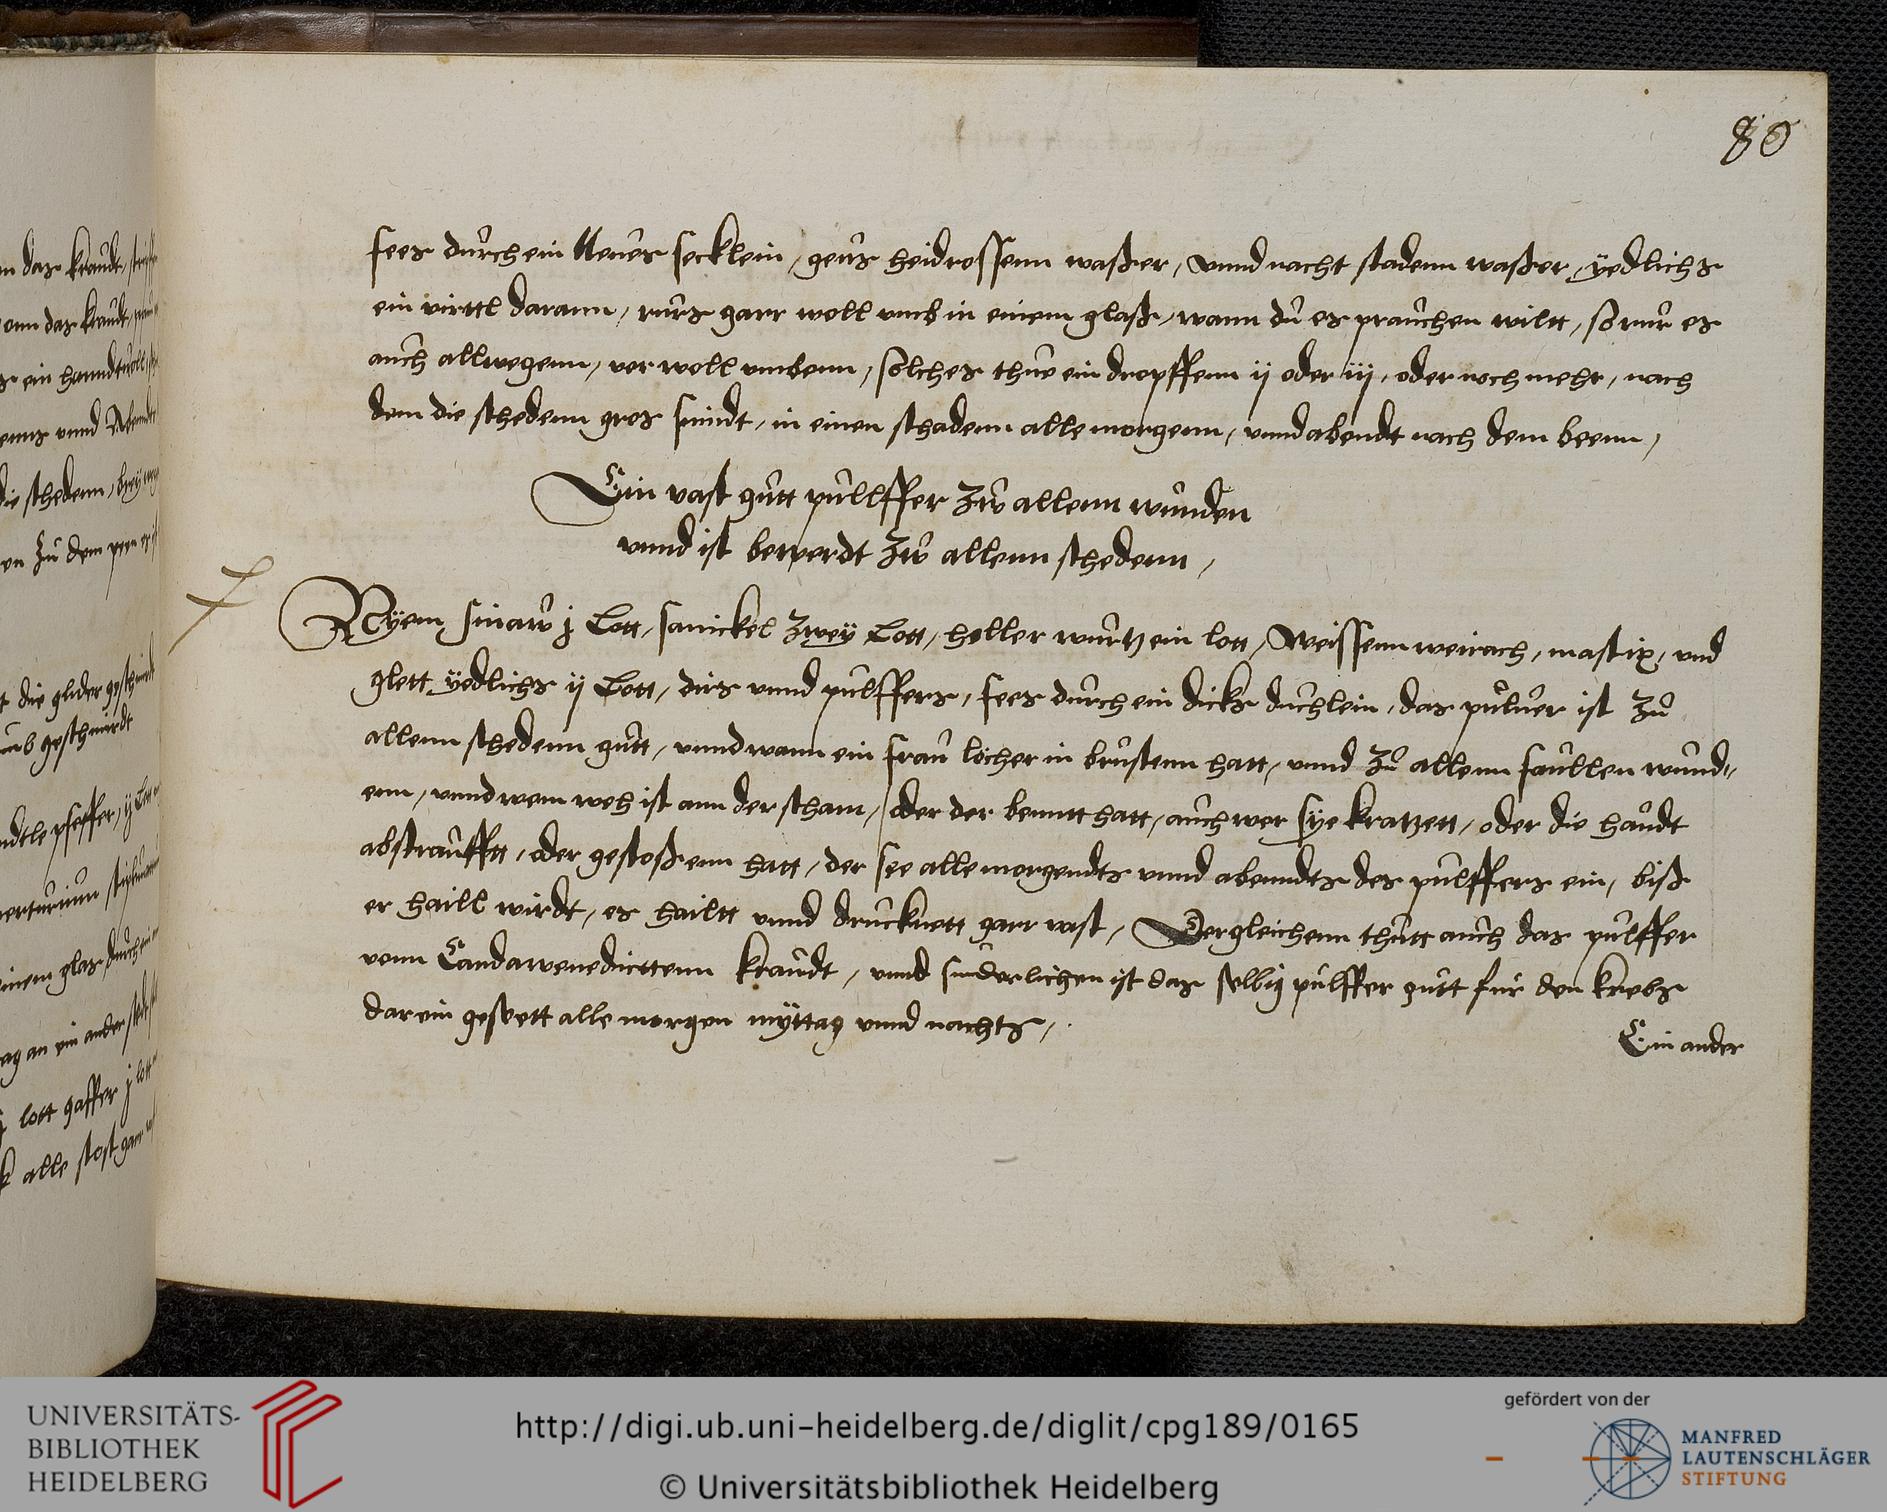 80
sees durch ein Neues secklein, geus heidrossenn waßer, vnnd nacht stadenn waßer, ÿedlichs
ein virttl darann, rurs garr woll vmb in einem glaß, wann du es prauchen wiltt, so rur es
auch allwegenn, vor woll vmbenn, solches thue ein dropffenn ij oder iij, oder noch mehr, nach
dem die schedenn gros sinndt, in einen schadenn alle morgenn, vnnd abendt nach dem beenn,
Ein vast gutt pullffer zw allenn wunden
vnnd ist bewerdt zw allenn schedenn,
Nÿem sinaw j Lott, sanickel zweÿ Lott, holler wurtz ein lott, Weissenn weirach, mastix, vnd
glett ÿedlichs ij Lott, dirs vnnd pulffers, sees durch ein dicks duchlein, das puluer ist zu
allenn schedenn gutt, vnnd wann ein frau löcher in brustenn hatt, vnnd zu allenn faullen wund-
enn, vnnd wem weh ist ann der scham, oder der benntt hatt, auch wer sÿe kratzett, oder die haudt
abstraufftt, oder gestoßenn hatt, der see alle morgendts vnnd abenndts des pulffers ein, biß
er haill wirdt, es hailtt vnnd drucknett garr vast, Dergleichenn thutt auch das pulffer
vonn Candawenedicttenn kraudt, vnnd sunderlichen ist das selbig pulffer gutt fur den krebs
darein geseett alle morgen mÿttag vnnd nachts,
Ein ander
UNIVERSITÄTS-
BIBLIOTHEK
HEIDELBERG
http://digi.ub.uni-heidelberg.de/diglit/cpg189/0165
© Universitätsbibliothek Heidelberg
gefördert von der
MANFRED
LAUTENSCHLÄGER
STIFTUNG